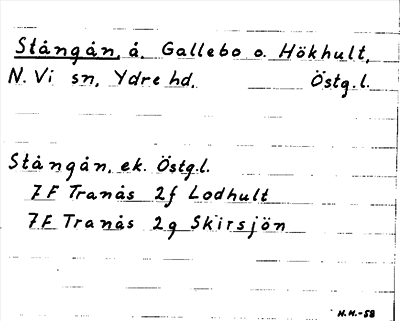 Stångån, å, Gallebo o. Hökhult,
N. Vi sn, Ydre hd, Östg.l.
Stångån, ek. Östg.l.
7F Tranås 2f Lodhult
7F Tranås 2g Skirsjön
H.H.-58